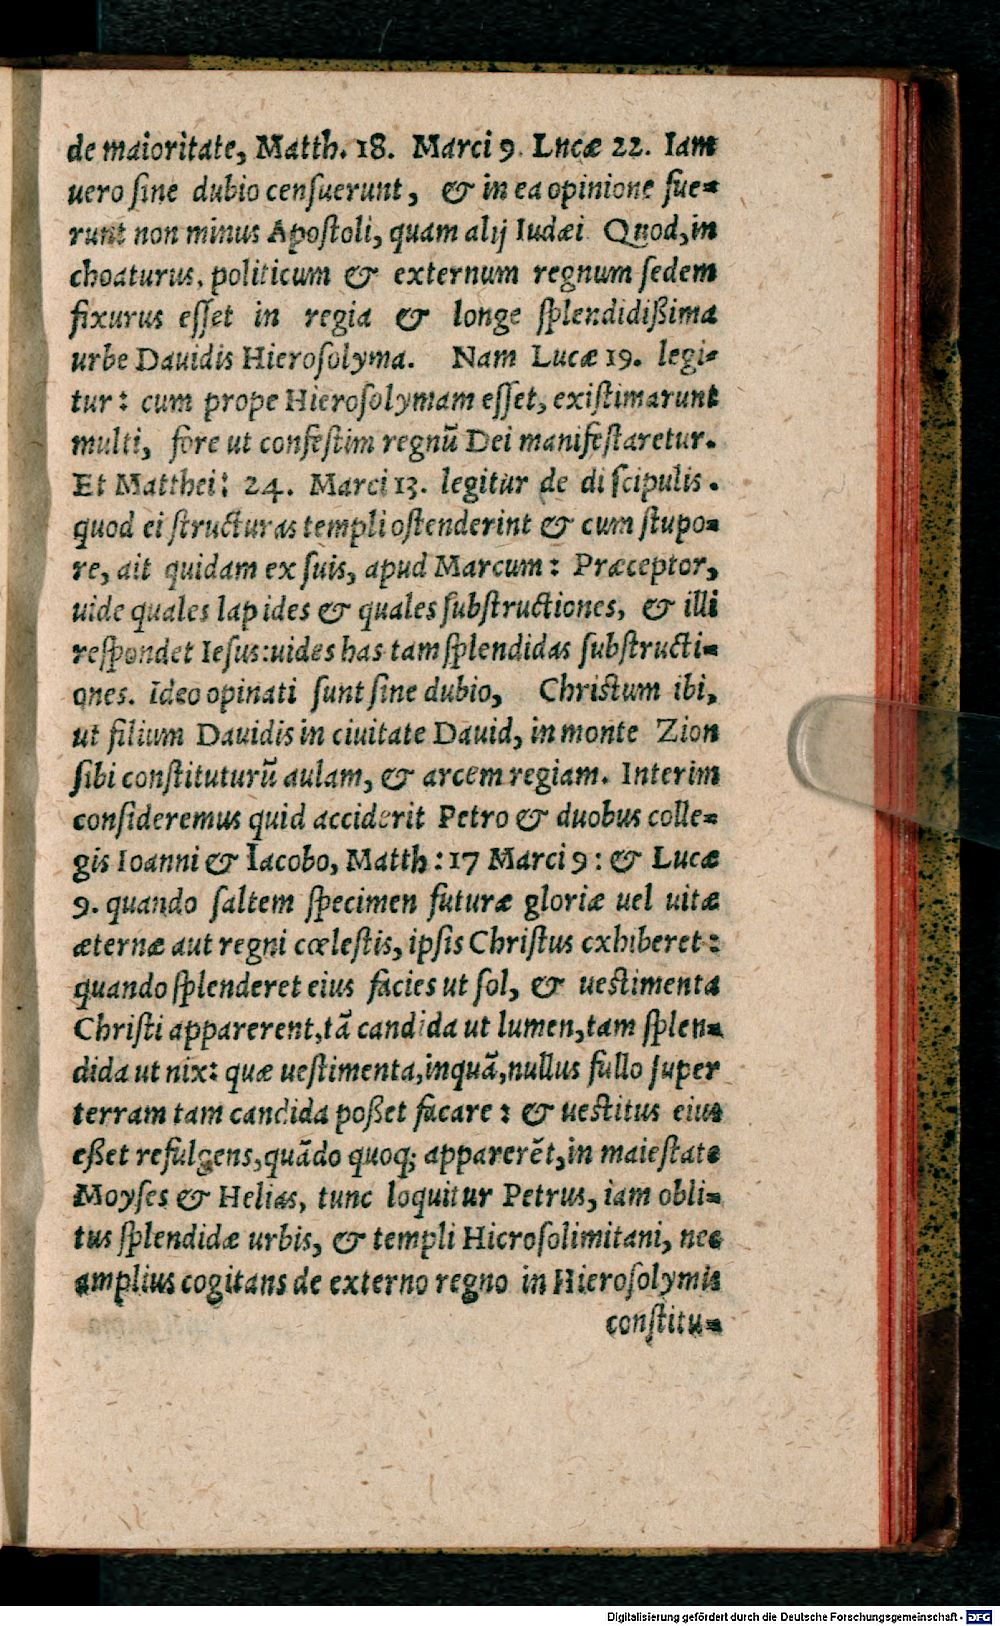 de maioritate, Matth. 18. Marci 9. Lncæ 22. Iam
uero ſine dubio cenſuerunt, & in ea opinione fue-
runt non minus Apoſtoli, quam alij Iudæi Quod, in
choaturus, politicum & externum regnum ſedem
fixurus eſſet in regia & longe ſplendidißima
urbe Dauidis Hieroſolyma. Nam Lucæ 19. legi-
tur: cum prope Hieroſolymam eſſet, exiſtimarunt
multi, fore ut confeſtim regnū Dei manifeſtaretur.
Et Matthei: 24. Marci 13. legitur de diſcipulis.
quod ei ſtructuras templi oſtenderint & cum ſtupo-
re, ait quidam ex ſuis, apud Marcum: Præceptor,
uide quales lapides & quales ſubſtructiones, & illi
reſpondet Ieſus: uides has tam ſplendidas ſubſtructi-
ones. Ideo opinati ſunt ſine dubio, Chriſtum ibi,
ut filium Dauidis in ciuitate Dauid, in monte Zion
ſibi conſtituturū aulam, & arcem regiam. Interim
conſideremus quid acciderit Petro & duobus colle-
gis Ioanni & Iacobo, Matth: 17 Marci 9: & Lucæ
9. quando ſaltem ſpecimen futuræ gloriæ uel uitæ
æternæ aut regni cœleſtis, ipſis Chriſtus exhiberet:
quando ſplenderet eius facies ut ſol, & ueſtimenta
Chriſti apparerent, tā candida ut lumen, tam ſplen-
dida ut nix: quæ ueſtimenta, inquā, nullus fullo ſuper
terram tam candida poßet facare: & ueſtitus eius
eßet refulgens, quādo quoq; apparerēt, in maieſtate
Moyſes & Helias, tunc loquitur Petrus, iam obli-
tus ſplendidæ urbis, & templi Hieroſolimitani, nec
amplius cogitans de externo regno in Hieroſolymis
conſtitu-
Digitalisierung gefördert durch die Deutsche Forschungsgemeinschaft - DFG